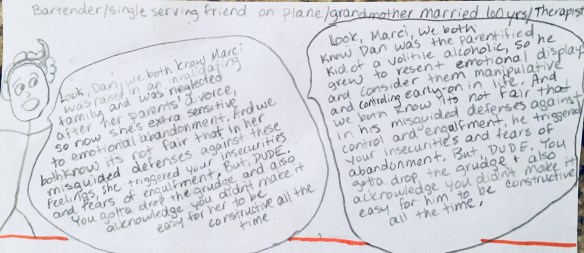 Bartender/single serving friend on plane/grandmother married 100 yrs/Therapist
Look, Dan, we both know Marci
was raised in an invalidating
family and was neglected
after her parents' divorce,
so now she's extra sensitive
to emotional abandonment. And we
both know its not fair that in her
misguided defenses against these
feelings, she triggered your insecurities
and fears of engulfment. But, DUDE.
You gotta drop the grudge and also
acknowledge you didn't make it
easy for her to be
constructive all the
time.
Look, Marci, we both
know Dan was the parentified
kid of a volitile alcoholic, so he
grew to resent emotional display
and consider them manipulative
and controlling early on in life. And
we both know its not fair that
in his misguided defenses against
control and engulfment, he triggered
your insecurities and fears of
abandonment. But, DUDE. You
gotta drop the grudge + also
acknowledge you didn't make it
easy for him to be constructive
all the time.